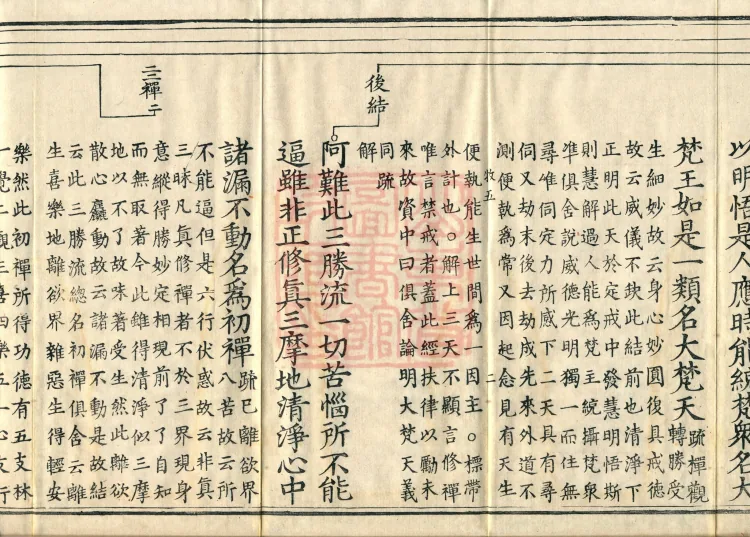 以明悟是人應時能統梵衆名大
梵王如是一類名大梵天疏禪觀轉勝受
生細妙故云身心妙圓復具戒德
故云威儀不缺此結前也清淨下
正明此天於定戒中發慧明悟斯
則慧解過人能爲梵王統攝梵衆
準俱舍說威德光明獨一而住無
尋唯伺定力所感下二天具有尋
伺又劫末後去劫成先來外道不
測便執爲常又因起念見有天生
牧五 二
便執能生世間爲一因主。標帶
外計也。解上三天不顯言修禪
唯言禁戒者蓋此經扶律以勵末
來故資中曰俱舍論明大梵天義
同疏
解
後結
阿難此三勝流一切苦惱所不能
逼雖非正修眞三摩地清淨心中
諸漏不動名爲初禪疏已離欲界八苦故云所
不能逼但是六行伏惑故云非眞
三昧凡眞修禪者不於三界現身
意縱得勝妙定相現前了了自知
而無取著今此雖得清淨似三摩
地以不了故味著受生然此離欲
散心麤動故云諸漏不動是故結
云此三勝流總名初禪俱舍云離
生喜樂地離欲界雜惡生得輕安
二三禪二
樂然此初禪所得功德有五支林
一覺二觀三喜四樂五一心支行